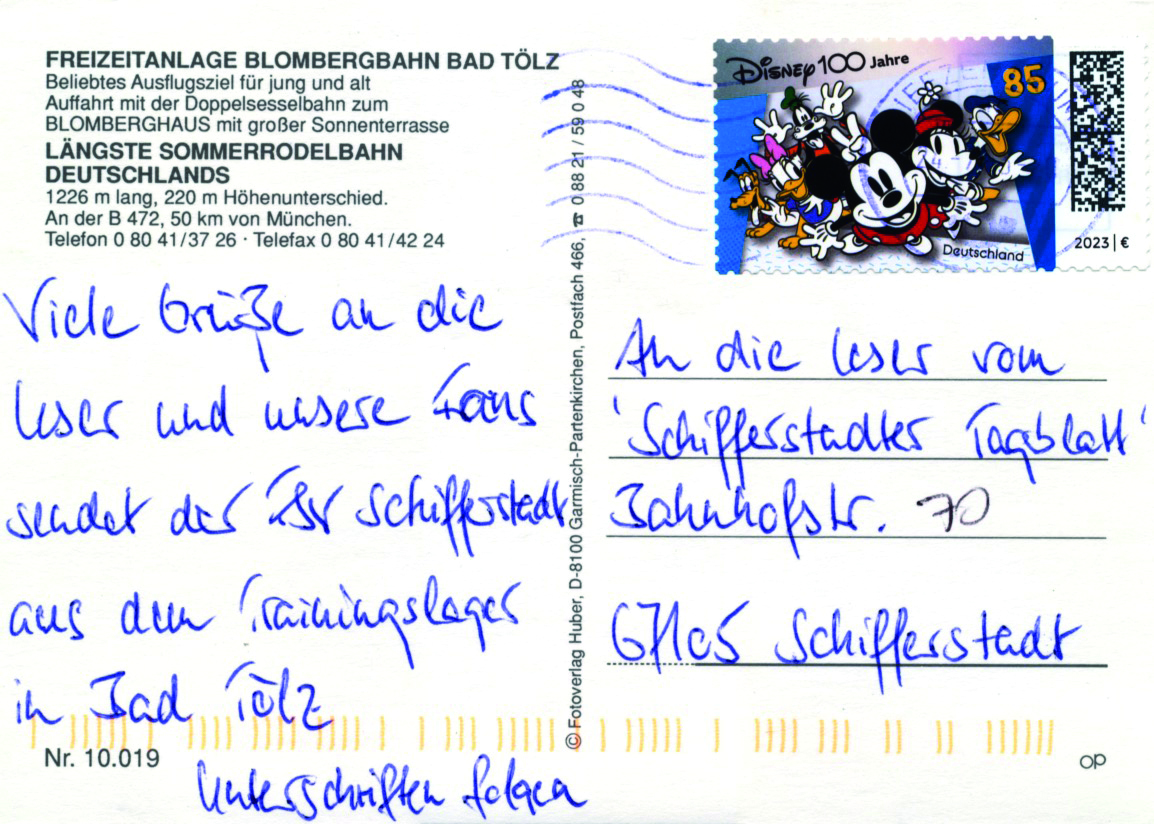 FREIZEITANLAGE BLOMBERGBAHN BAD TÖLZ
Beliebtes Ausflugsziel für jung und alt
Auffahrt mit der Doppelsesselbahn zum
BLOMBERGHAUS mit großer Sonnenterrasse
LÄNGSTE SOMMERRODELBAHN
DEUTSCHLANDS
1226 m lang, 220 m Höhenunterschied.
An der B 472, 50 km von München.
Telefon 0 80 41/37 26 · Telefax 0 80 41/42 24
Viele Grüße an die
Leser und unsere Fans
sendet der Schifferstadt
aus dem Trainingslager
in Bad Tölz
Nr. 10.019
Unterschriften folgen
© Fotoverlag Huber, D-8100 Garmisch-Partenkirchen, Postfach 466, ☎ 0 88 21 / 59 0 48
Disney 100 Jahre
85
Deutschland
2023 | €
An die Leser vom
'Schifferstadter Tagblatt'
Bahnhofstr. 70
67105 Schifferstadt
op